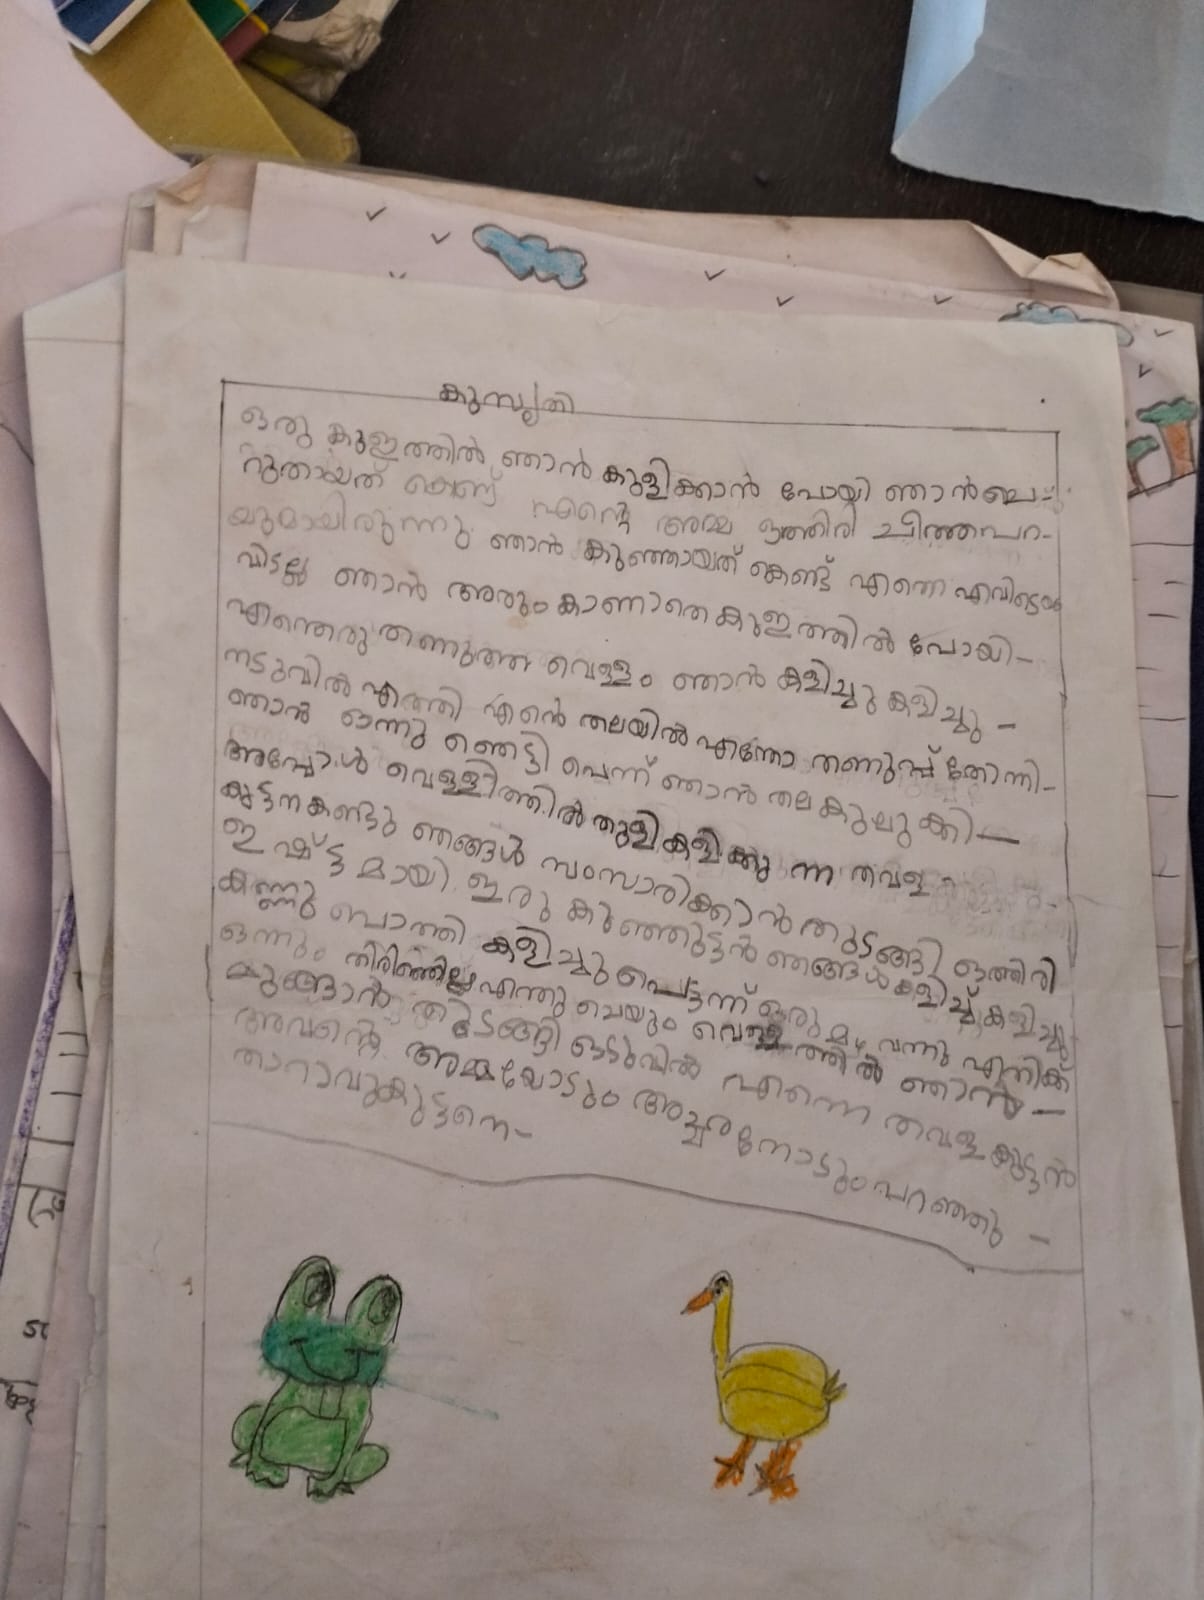 കുസൃതി
ഒരു കുഇത്തിൽ ഞാൻ കുളിക്കാൻ പോയി ഞാൻ ചെ-
റുതായത് കെണ്ട് എന്റെ അമ്മ ഒത്തിരി ചീത്തപറ-
യുമായിരുന്നു. ഞാൻ കുഞ്ഞായത് കെണ്ട് എന്നെ എവിടെയ
വിടല്ല ഞാൻ അരും കാണാതെ കുഇത്തിൽ പോയി-
എന്തെരു തണുത്ത വെള്ളം ഞാൻ കളിച്ചു കളിച്ചു -
നടുവിൽ എത്തി എൻെ തലയിൽ എന്തോ തണുപ്പ് തോന്നി-
ഞാൻ ഒന്നു ഞെട്ടി പെന്ന് ഞാൻ തല കുലുക്കി-
അപ്പോൾ വെള്ളിത്തിൽ തുളികളിക്കുന്ന തവള
കുട്ടനകണ്ടു ഞങ്ങൾ സംസാരിക്കാൻ തുടങ്ങി ഒത്തിരി
ഇഷ്ട്ടമായി. ഇരു കുഞ്ഞുട്ടൻ ഞങ്ങൾ കളിച്ച് കളിച്ചു
കണ്ണു പൊത്തി കളിച്ചു പെട്ടന്ന് ഒരു മഴ വന്നു എനിക്ക്
ഒന്നും തിരിഞ്ഞില്ല എന്തു ചെയും വെള്ളത്തിൽ ഞാൻ -
മുങ്ങാൻ തുടങ്ങി ഒടുവിൽ എന്നെ തവള കുട്ടൻ
അവന്റെ അമ്മയോടും അച്ഛനോടും പറഞ്ഞു -
താറാവുകുട്ടനെ-